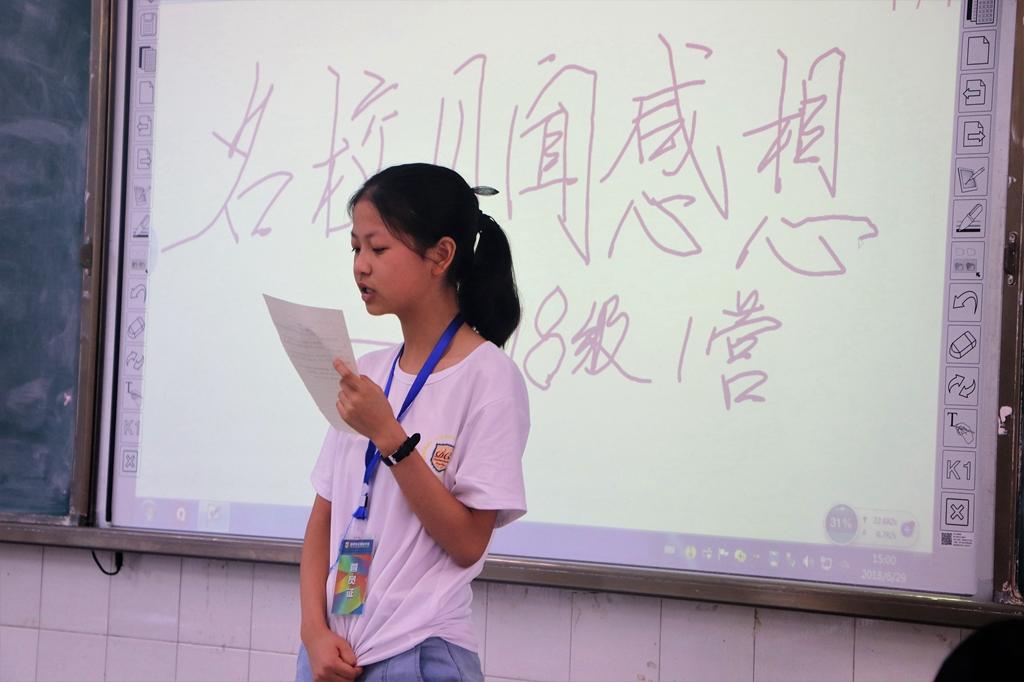 名校见闻感想
—18级1营
K1
K1
31%
15:00
2018/6/29
营员证